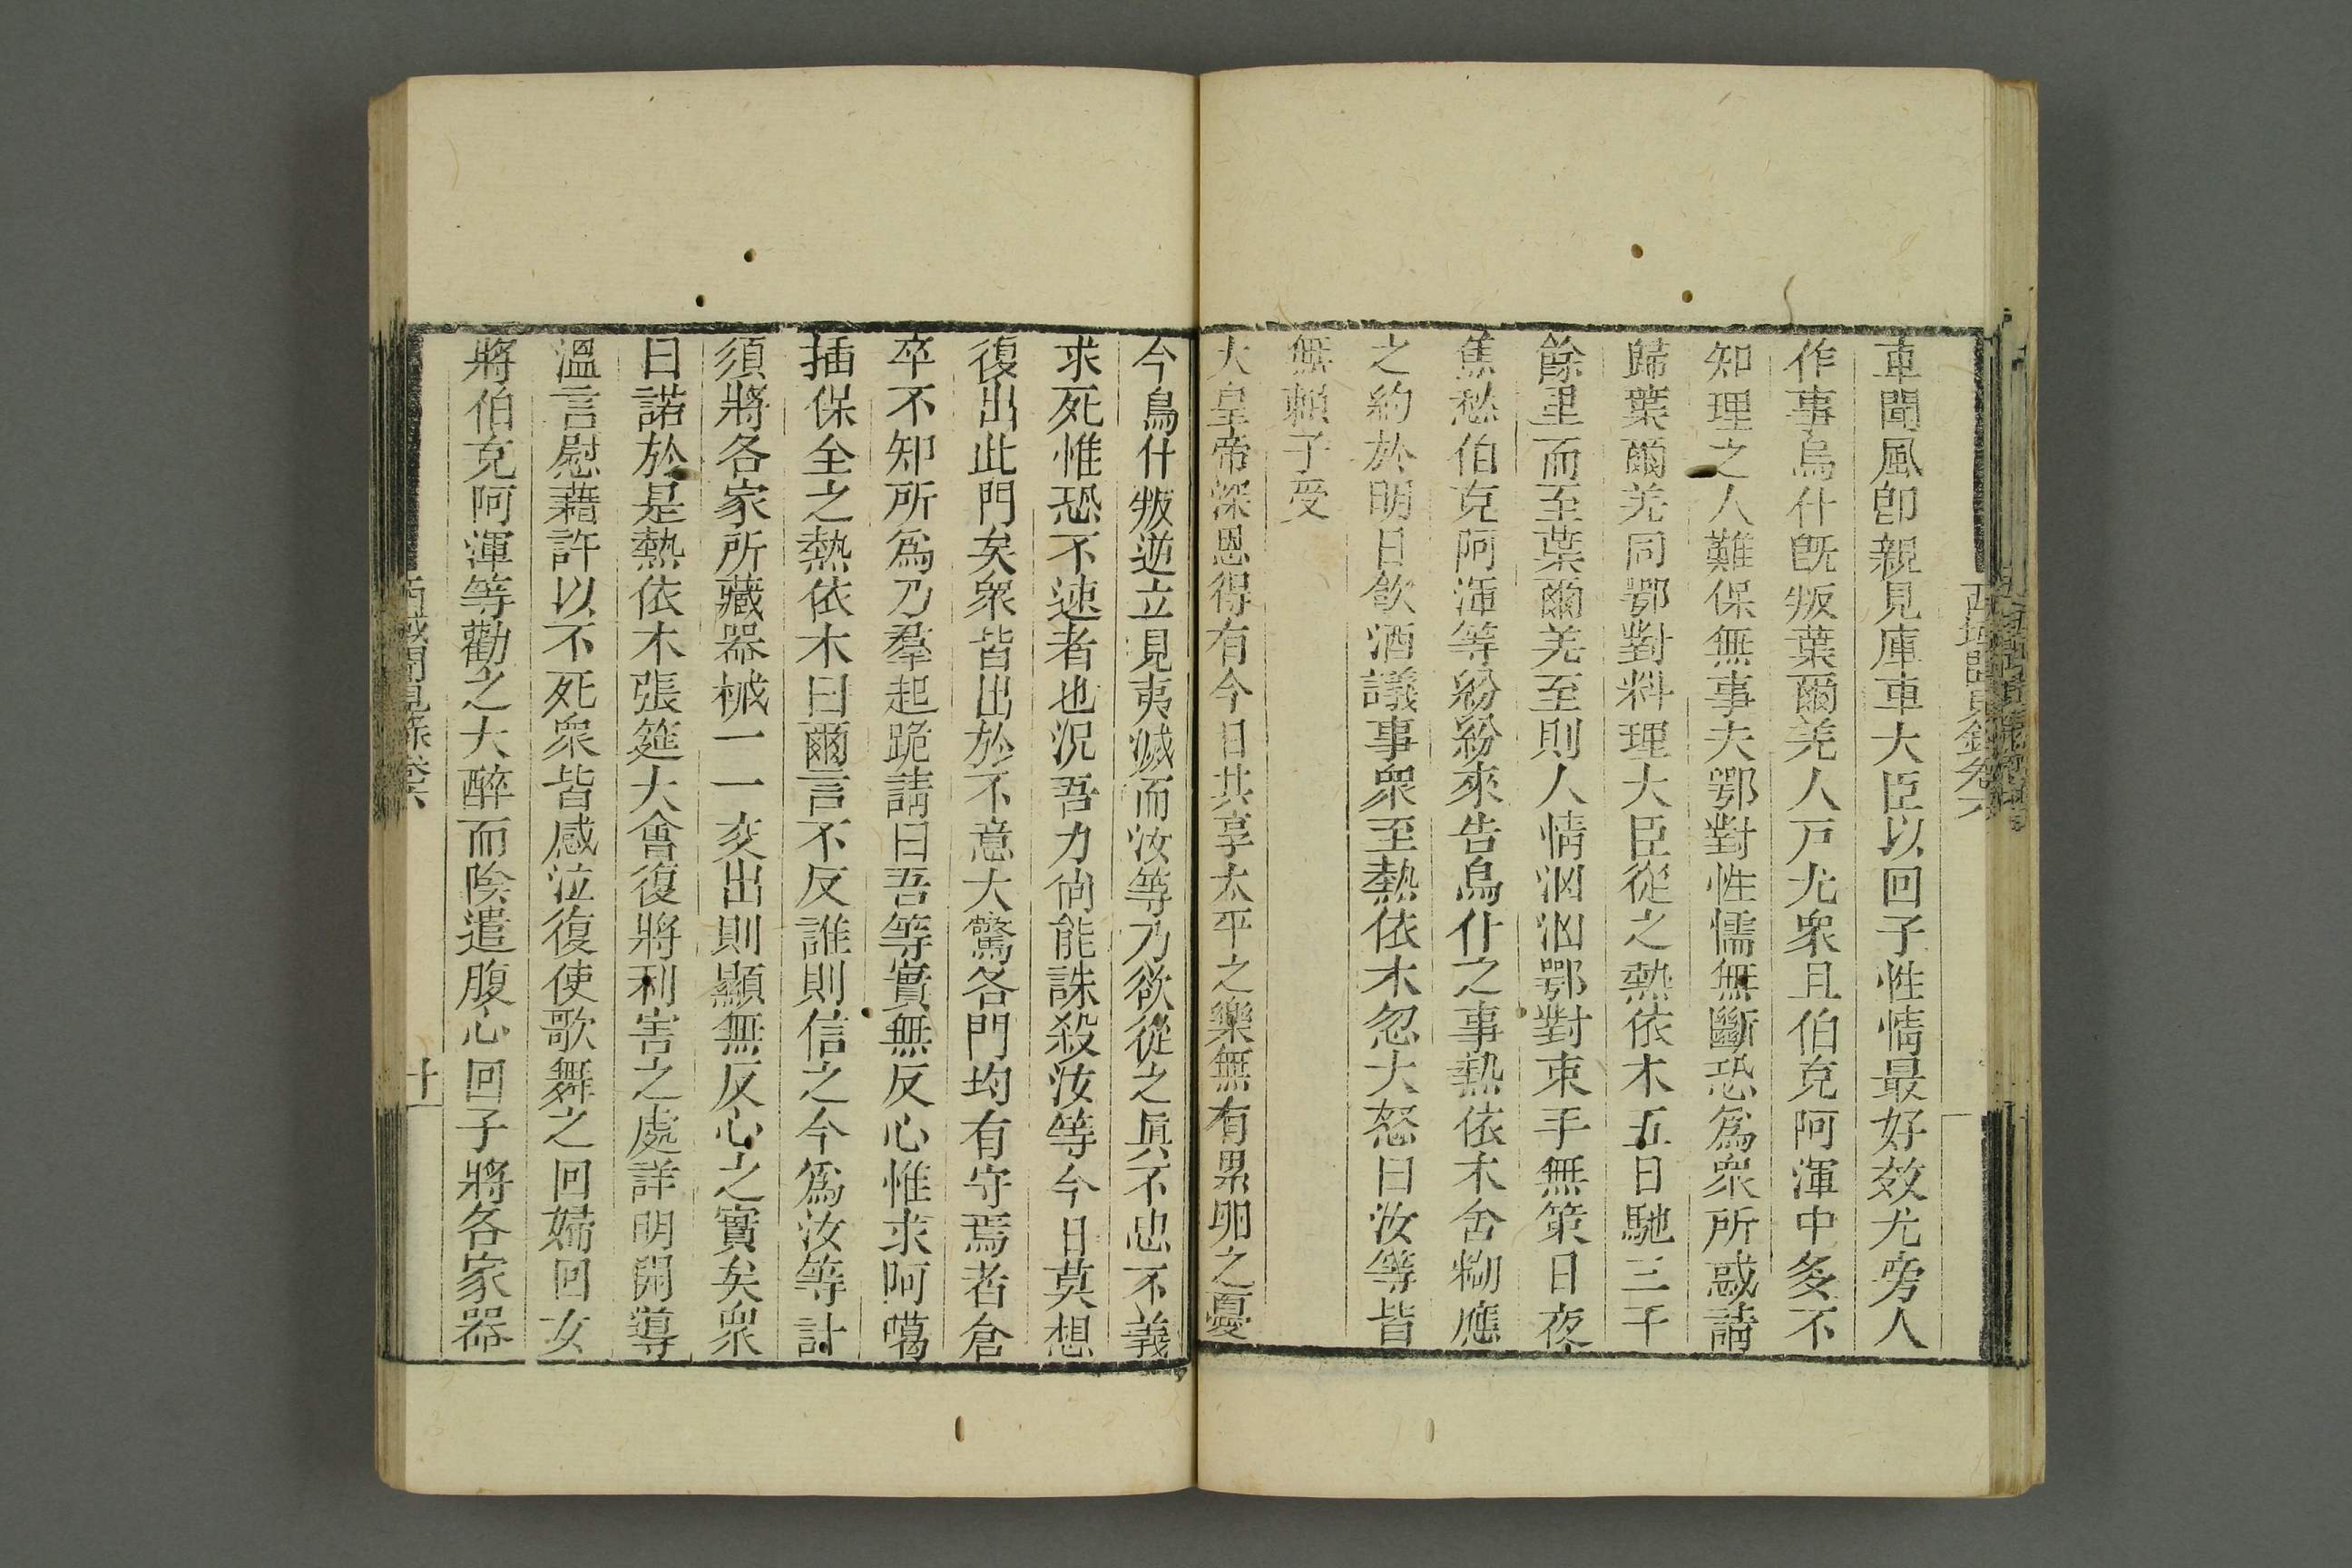 車聞風卽親見庫車大臣以回子性情最好效尤旁人
作事烏什旣叛葉爾羌人戶尤衆且伯克阿渾中多不
知理之人難保無事夫鄂對性懦無斷恐爲衆所惑請
歸葉爾羌同鄂對料理大臣從之熱依木五日馳三千
餘里而至葉爾羌至則人情洶洶鄂對束手無策日夜
焦愁伯克阿渾等紛紛來告烏什之事熱依木含糊應
之約於明日飲酒議事衆至熱依木忽大怒曰汝等皆
無賴子受
大皇帝深恩得有今日共享太平之樂無有累卵之憂
今烏什叛逆立見夷滅而汝等乃欲從之眞不忠不義
求死惟恐不速者也況吾力尙能誅殺汝等今日莫想
復出此門矣衆皆出於不意大驚各門均有守焉者倉
卒不知所爲乃羣起跪請曰吾等實無反心惟求阿噶
插保全之熱依木曰爾言不反誰則信之今爲汝等計
須將各家所藏器械一一交出則顯無反心之實矣衆
曰諾於是熱依木張筵大會復將利害之處詳明開導
溫言慰藉許以不死衆皆感泣復使歌舞之回婦回女
將伯克阿渾等勸之大醉而陰遣腹心回子將各家器
西域聞見錄卷六
十